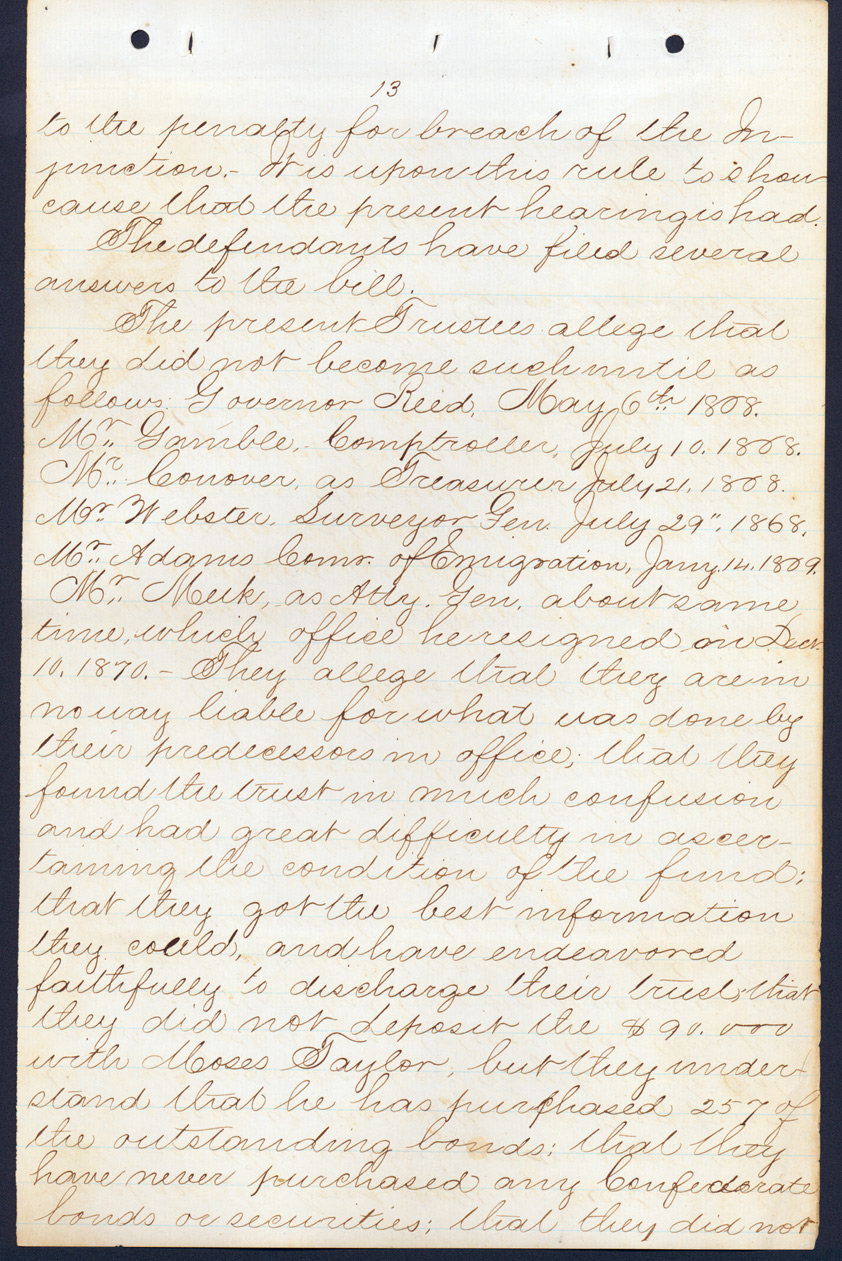 13
to the penalty for breach of the In-
junction.- It is upon this rule to show
cause that the present hearing is had.
The defendants have filed several
answers to the bill.
The present Trustees allege that
they did not become such until as
follows: Governor Reed, May 6th 1868.
Mr. Gamble, Comptroller, July 10. 1868.
Mr. Conover, as Treasurer July 21. 1868.
Mr. Webster, Surveyor Gen. July 29". 1868.
Mr. Adams Comr. of Emigration, Jany. 14. 1869.
Mr. Meek, as Atty. Gen. about same
time, which office he resigned on Decr.
10. 1870.- They allege that they are in
no way liable for what was done by
their predecessors in office; that they
found the trust in much confusion
and had great difficulty in ascer-
taining the condition of the fund;
that they got the best information
they could, and have endeavored
faithfully to discharge their trust; that
they did not deposit the $90.000
with Moses Taylor, but they under-
stand that he has purchased 257 of
the outstanding bonds; that they
have never purchased any Confederate
bonds or securities; that they did not